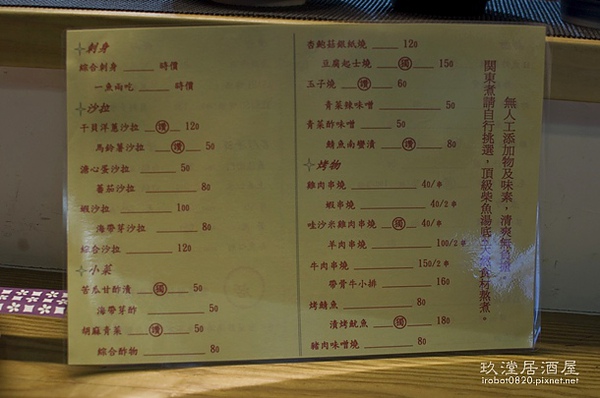 刺身
綜合刺身 時價
一魚兩吃 時價
沙拉
干貝洋蔥沙拉 讚 120
馬鈴薯沙拉 讚 50
溏心蛋沙拉 50
蕃茄沙拉 80
蝦沙拉 100
海帶芽沙拉 80
綜合沙拉 120
小菜
苦瓜甘酢漬 獨 50
海帶芽酢 50
胡麻青菜 讚 50
綜合酢物 80
杏鮑菇銀紙燒 120
豆腐起士燒 獨 150
玉子燒 讚 60
青菜辣味噌 50
青菜酢味噌 50
鯖魚南蠻漬 讚 80
烤物
雞肉串燒 40/串
蝦串燒 40/串
哇沙米雞肉串燒 獨 40/串
羊肉串燒 100/2串
牛肉串燒 150/2串
帶骨牛小排 160
烤鯖魚 80
漬烤魷魚 獨 180
豬肉味噌燒 80
無人工添加物及味素，清爽無
関東煮請自行挑選，頂級柴魚湯底天然食材熬煮。
玖瀅居酒屋
irobot0820.pixnet.net